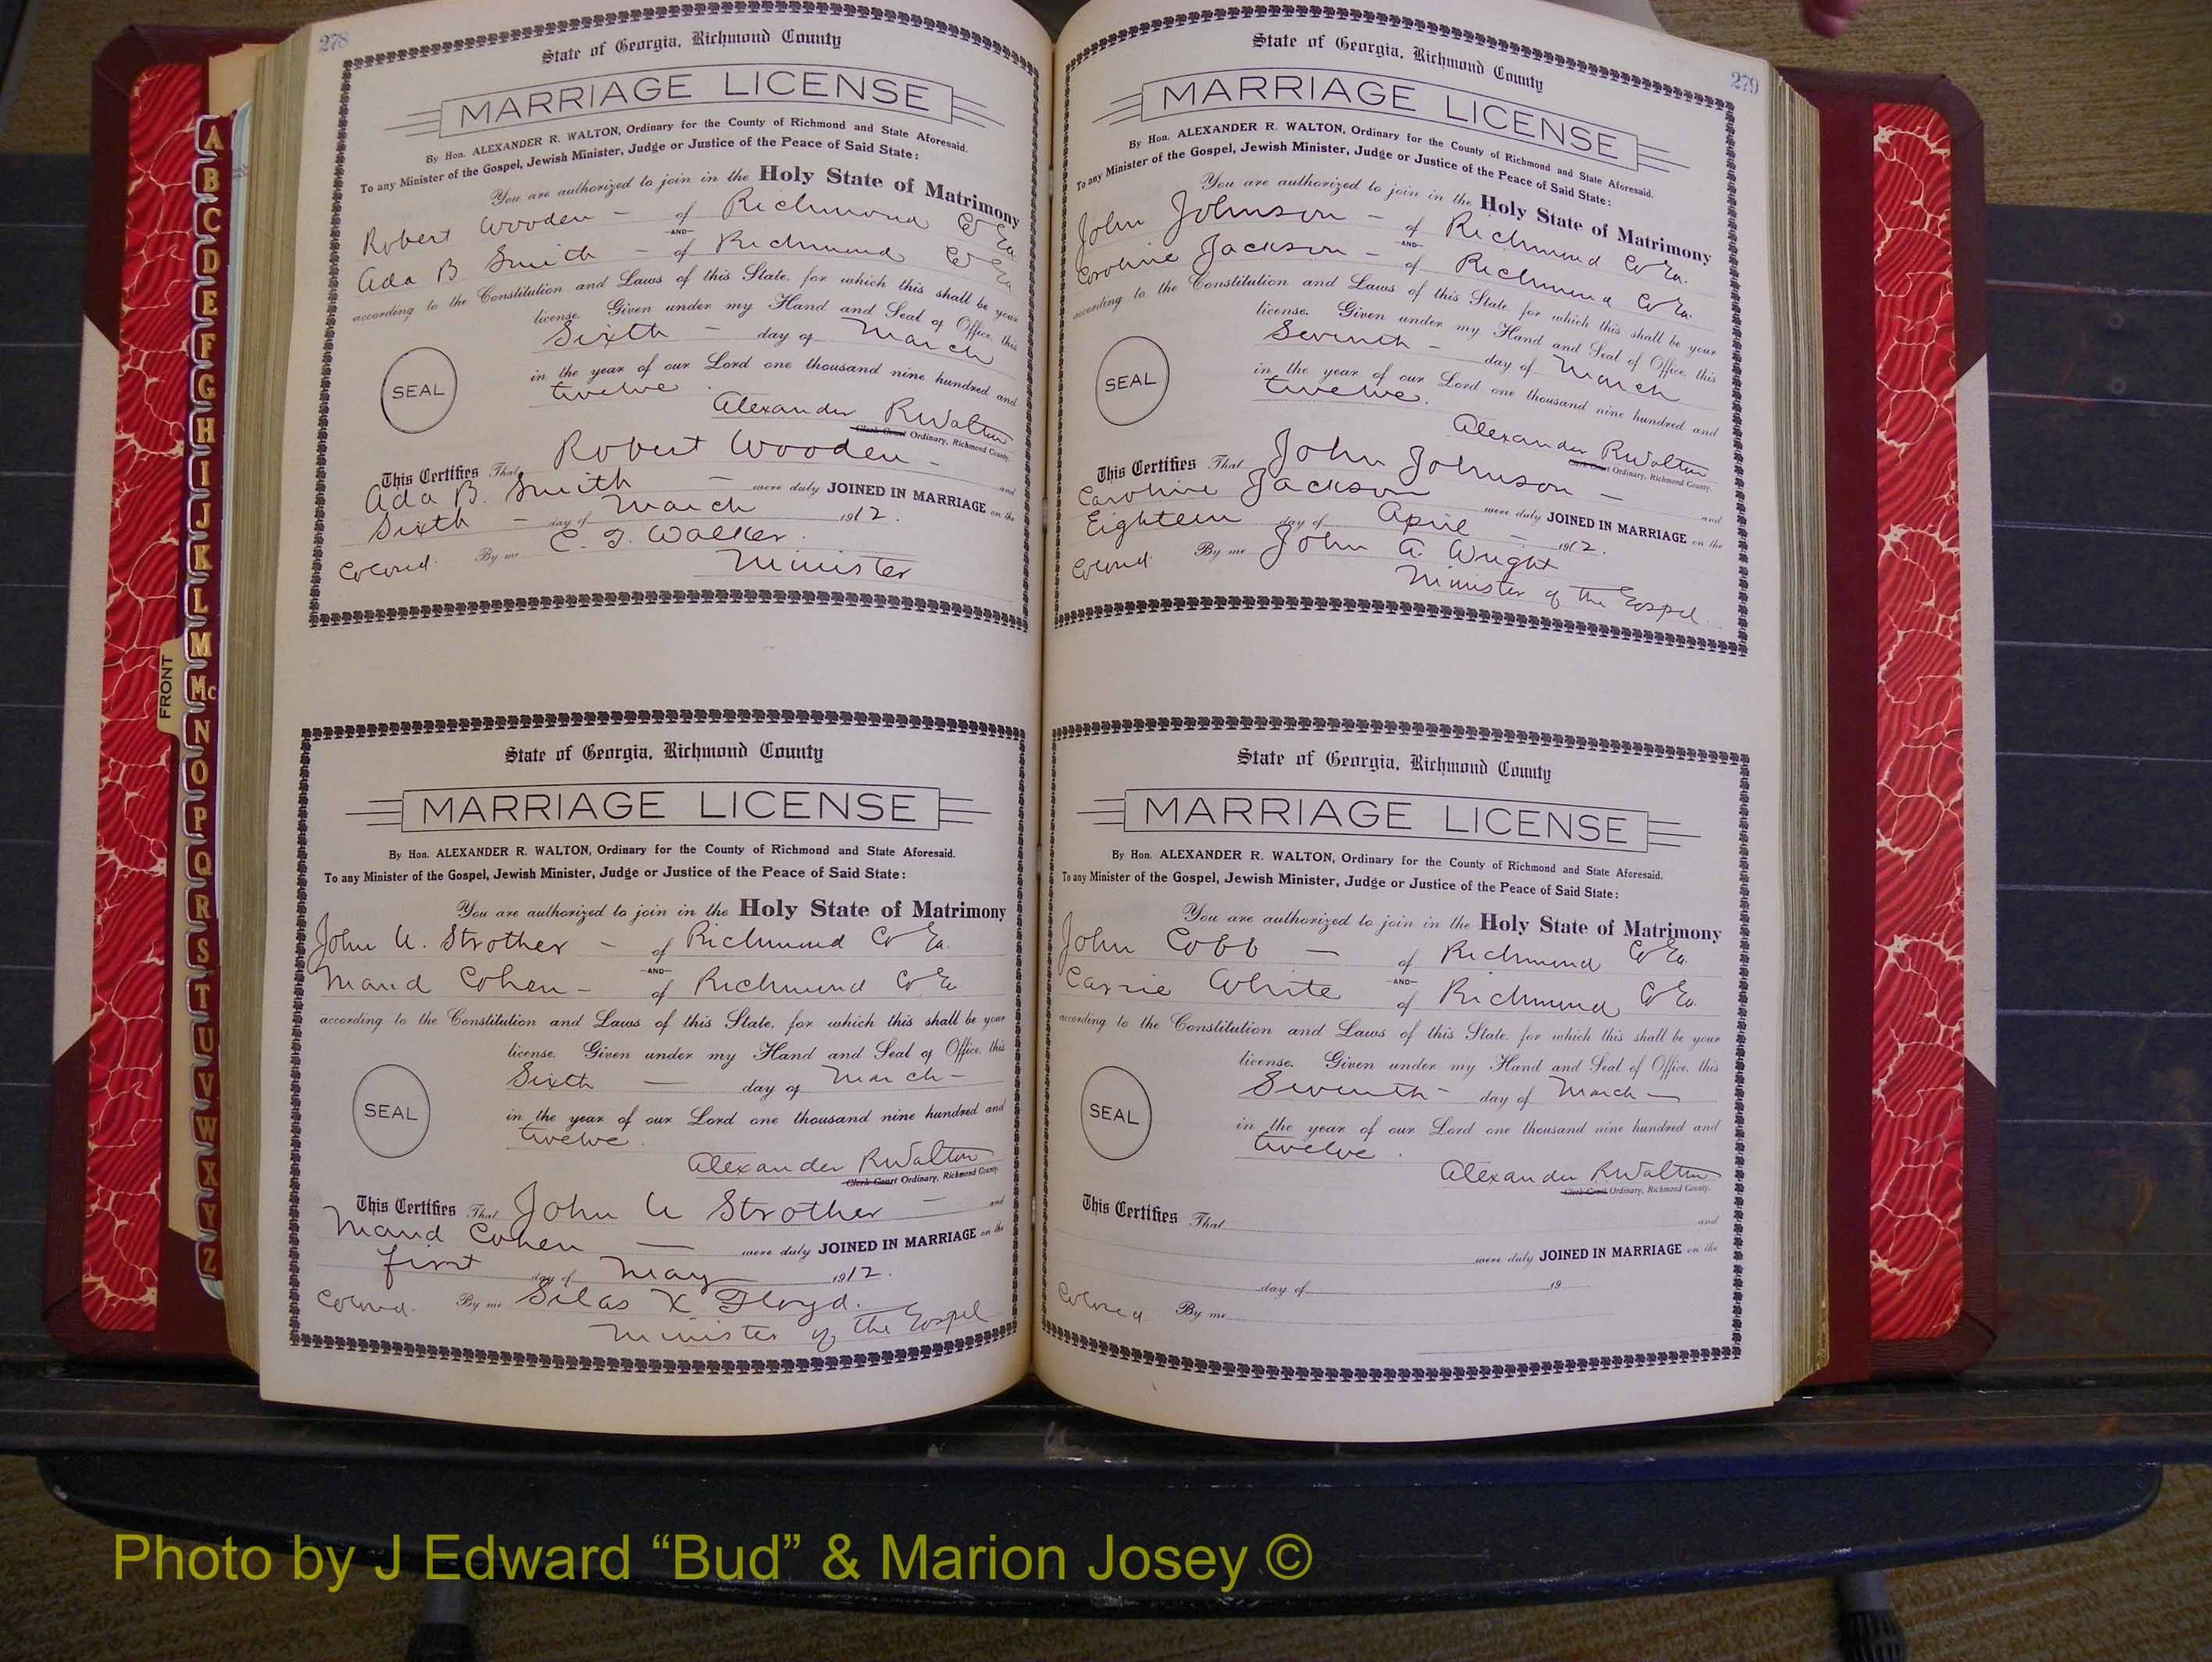 278
State of Georgia, Richmond County
MARRIAGE LICENSE
By Hon. ALEXANDER R. WALTON, Ordinary for the County of Richmond and State Aforesaid.
To any Minister of the Gospel, Jewish Minister, Judge or Justice of the Peace of Said State:
You are authorized to join in the Holy State of Matrimony
Robert Wooden - of Richmond Co Ga
-AND-
Ada B. Smith - of Richmond Co Ga
according to the Constitution and Laws of this State, for which this shall be your
license. Given under my Hand and Seal of Office, this
Sixth - day of March
SEAL
in the year of our Lord one thousand nine hundred and
twelve.
Alexander R Walton
Clerk Court Ordinary, Richmond County.
This Certifies That Robert Wooden - and
Ada B. Smith - were duly JOINED IN MARRIAGE on the
Sixth - day of March 1912.
Colored. By me C. T. Walker.
Minister
State of Georgia, Richmond County
MARRIAGE LICENSE
By Hon. ALEXANDER R. WALTON, Ordinary for the County of Richmond and State Aforesaid.
To any Minister of the Gospel, Jewish Minister, Judge or Justice of the Peace of Said State:
You are authorized to join in the Holy State of Matrimony
John U. Strother - of Richmond Co Ga.
-AND-
Maud Cohen - of Richmond Co Ga
according to the Constitution and Laws of this State, for which this shall be your
license. Given under my Hand and Seal of Office, this
Sixth - day of March -
SEAL
in the year of our Lord one thousand nine hundred and
twelve.
Alexander R Walton
Clerk Court Ordinary, Richmond County.
This Certifies That John U Strother - and
Maud Cohen - were duly JOINED IN MARRIAGE on the
first day of May 1912.
Colored. By me Silas X Floyd.
Minister of the Gospel
279
State of Georgia, Richmond County
MARRIAGE LICENSE
By Hon. ALEXANDER R. WALTON, Ordinary for the County of Richmond and State Aforesaid.
To any Minister of the Gospel, Jewish Minister, Judge or Justice of the Peace of Said State:
You are authorized to join in the Holy State of Matrimony
John Johnson - of Richmond Co Ga.
-AND-
Caroline Jackson - of Richmond Co Ga.
according to the Constitution and Laws of this State, for which this shall be your
license. Given under my Hand and Seal of Office, this
Seventh - day of March
SEAL
in the year of our Lord one thousand nine hundred and
twelve.
Alexander R Walton
Clerk Court Ordinary, Richmond County.
This Certifies That John Johnson - and
Caroline Jackson were duly JOINED IN MARRIAGE on the
Eighteen day of April - 1912.
Colored. By me John A. Wright
Minister of the Gospel.
State of Georgia, Richmond County
MARRIAGE LICENSE
By Hon. ALEXANDER R. WALTON, Ordinary for the County of Richmond and State Aforesaid.
To any Minister of the Gospel, Jewish Minister, Judge or Justice of the Peace of Said State:
You are authorized to join in the Holy State of Matrimony
John Cobb - of Richmond Co Ga.
-AND-
Carrie White of Richmond Co Ga.
according to the Constitution and Laws of this State, for which this shall be your
license. Given under my Hand and Seal of Office, this
Seventh - day of March -
SEAL
in the year of our Lord one thousand nine hundred and
twelve.
Alexander R Walton
Clerk Court Ordinary, Richmond County.
This Certifies That and
were duly JOINED IN MARRIAGE on the
day of 19
Colored By me
FRONT
A
B
C
D
E
F
G
H
I
J
K
L
M
Mc
N
O
P
Q
R
S
T
U
V
W
X
Y
Z
Photo by J Edward “Bud” & Marion Josey ©